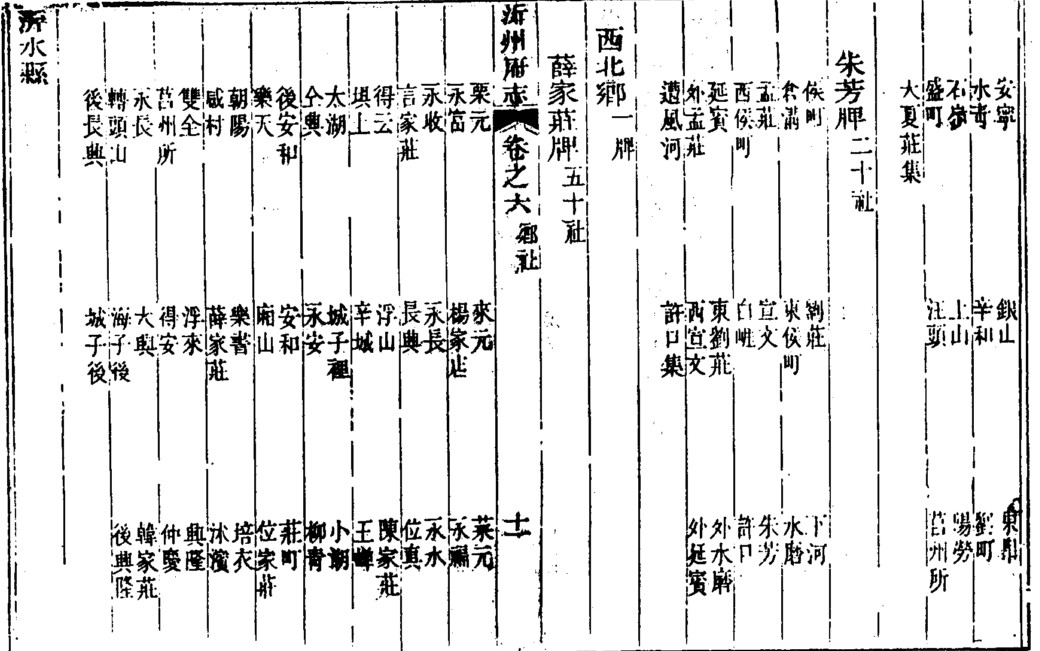 安寧 銀山 東鼎
水奇 辛和 劉町
石嶺 上山 陽勞
盛町 汪頭 莒州所
大夏莊集
朱芳牌二十社
侯町 劉莊 下河
東侯町 水磨
孟莊 宣文 朱芳
西侯町 白 許口
延賓 東劉莊 外水磨
外孟莊 西宣文 外延賓
遭風河 許口集
西北鄉一牌
薛家莊牌五十社
沂州府志 卷之六 鄉社 十一
栗元 來元 菜元
永富 楊家店 永福
永收 永長 永水
言家莊 長興 位真
得云 浮山 陳家莊
埧上 辛城 王
太湖 城子裡 小湖
仝興 永安 柳青
後安和 安和 莊町
樂天 廟山 位家莊
朝陽 樂書 培衣
戚村 薛家莊 沭濱
雙全 浮來 興隆
莒州所 得安 仲慶
永長 大興 韓家莊
轉頭山 海子後 後興隆
後長興 城子後
沂水縣